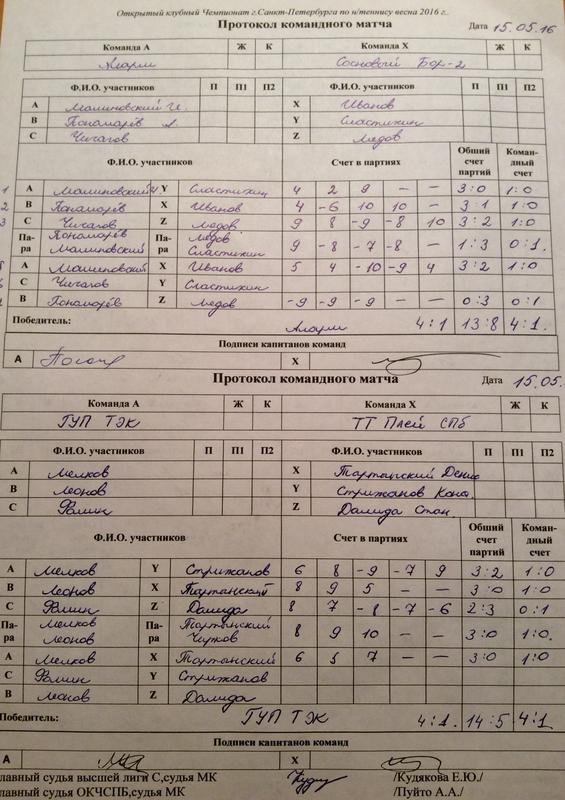 Открытый клубный Чемпионат г.Санкт-Петербурга по н/теннису весна 2016 г..
Протокол командного матча Дата 15.05.16
Команда А Ж К Команда X Ж К
Алгрми Сосновый Бор-2
Ф.И.О. участников П П1 П2 Ф.И.О. участников П П1 П2
А Малиновский И. X Иванов
В Пономарёв А. Y Сластихин
С Чичагов Z Медов
Ф.И.О. участников Счет в партиях Общий счет партий Коман-дный счет
1 А Малиновский И. Y Сластихин 4 2 9 – – 3:0 1:0
2 В Пономарёв X Иванов 4 -6 10 10 – 3:1 1:0
3 С Чичагов Z Медов 9 8 -9 -8 10 3:2 1:0
Па-ра Пономарёв Малиновский Па-ра Медов Сластихин 9 -8 -7 -8 – 1:3 0:1.
А Малиновский X Иванов 5 4 -10 -9 4 3:2 1:0
С Чичагов Y Сластихин
В Пономарёв Z Медов -9 -9 -9 – – 0:3 0:1
Победитель: 4:1 13:8 4:1.
Подписи капитанов команд
А X
Протокол командного матча Дата 15.05.
Команда А Ж К Команда X Ж К
ГУП ТЭК ТТ Плей СПб
Ф.И.О. участников П П1 П2 Ф.И.О. участников П П1 П2
А Мелков X Тартанский Денис
В Леонов Y Стрижанов Конс.
С Фомин Z Далида Стан.
Ф.И.О. участников Счет в партиях Общий счет партий Коман-дный счет
А Мелков Y Стрижанов 6 8 -9 -7 9 3:2 1:0
В Леонов X Тартанский 8 9 5 – – 3:0 1:0
С Фомин Z Далида 8 7 -8 -7 -6 2:3 0:1
Па-ра Мелков Леонов Па-ра Тартанский Чирков 8 9 10 – – 3:0 1:0.
А Мелков X Тартанский 6 5 7 – – 3:0 1:0
С Фомин Y Стрижанов
В Леонов Z Далида
Победитель: ГУП ТЭК 4:1. 14:5 4:1
Подписи капитанов команд
А X
лавный судья высшей лиги С,судья МК /Кудякова Е.Ю./
лавный судья ОКЧСПБ,судья МК /Пуйто А.А./